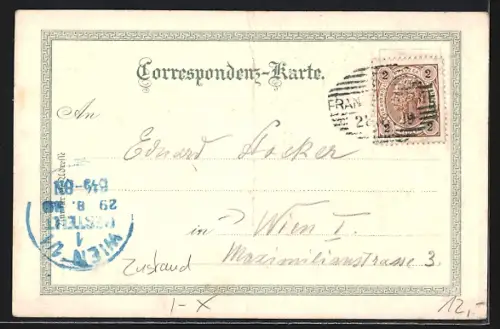 Correspondenz-Karte.
2 2
2 2
An
Eduard Hocker
in Wien I.
Maximilianstrasse 3.
WIEN 1/1
BESTELLT
1
29. 8.
Zustand
I-X
12,-